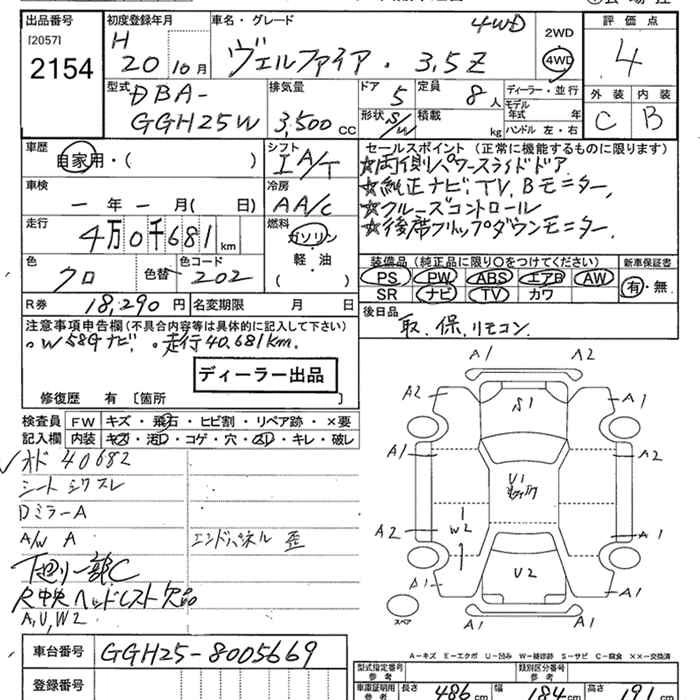 出品番号 初度登録年月 車名・グレード 4WD 2WD 評価点
[2057] H
2154 20 10月 ヴェルファイア・3.5Z 4WD 4
型式 排気量 ドア 定員 ディーラー・並行 外装 内装
DBA- 5 8人 モデル年式 年
GGH25W 3,500cc 形状 S/W 積載 kg ハンドル 左・右 C B
車歴 シフト セールスポイント(正常に機能するものに限ります)
自家用・( ) IA/T ☆両側パワースライドドア
車検 冷房 ☆純正ナビ、TV、Bモニター、
ー年ー月( 日) AA/C ☆クルーズコントロール
走行 燃料 ☆後席フリップダウンモニター、
4万0千681km ガソリン
色 色替 色コード 軽・油 装備品(純正品に限り○をつけてください) 新車保証書
クロ 202 ( ) PS PW ABS エアB AW 有・無
SR ナビ TV カワ
R券 18,290円 名変期限 月 日 後日品
注意事項申告欄(不具合内容等は具体的に記入して下さい) 取、保、リモコン、
。W58Gナビ。 。走行40,681km.
ディーラー出品
修復歴 有 [箇所 ]
検査員 FW キズ・飛石・ヒビ割・リペア跡・×要
記入欄 内装 キズ・汚レ・コゲ・穴・スレ・キレ・破レ
オド 40682
シート シワ スレ
DミラーA
A/W A エンドパネル 歪
下廻リ一部C
R中央ヘッドレスト欠品
A,U,W2
A1 A2
A2 S1 A1
A1 U1 A2
A2 W2 A1
A1 U2 A1
A1 A1
スペア
A-キズ E-エクボ U-凹み W-補修跡 S-サビ C-腐食 XX-交換済
車台番号 GGH25-8005669 型式指定番号 参考 類別区分番号 参考
登録番号 車庫証明用 参考 長さ 486cm 幅 184cm 高さ 191cm